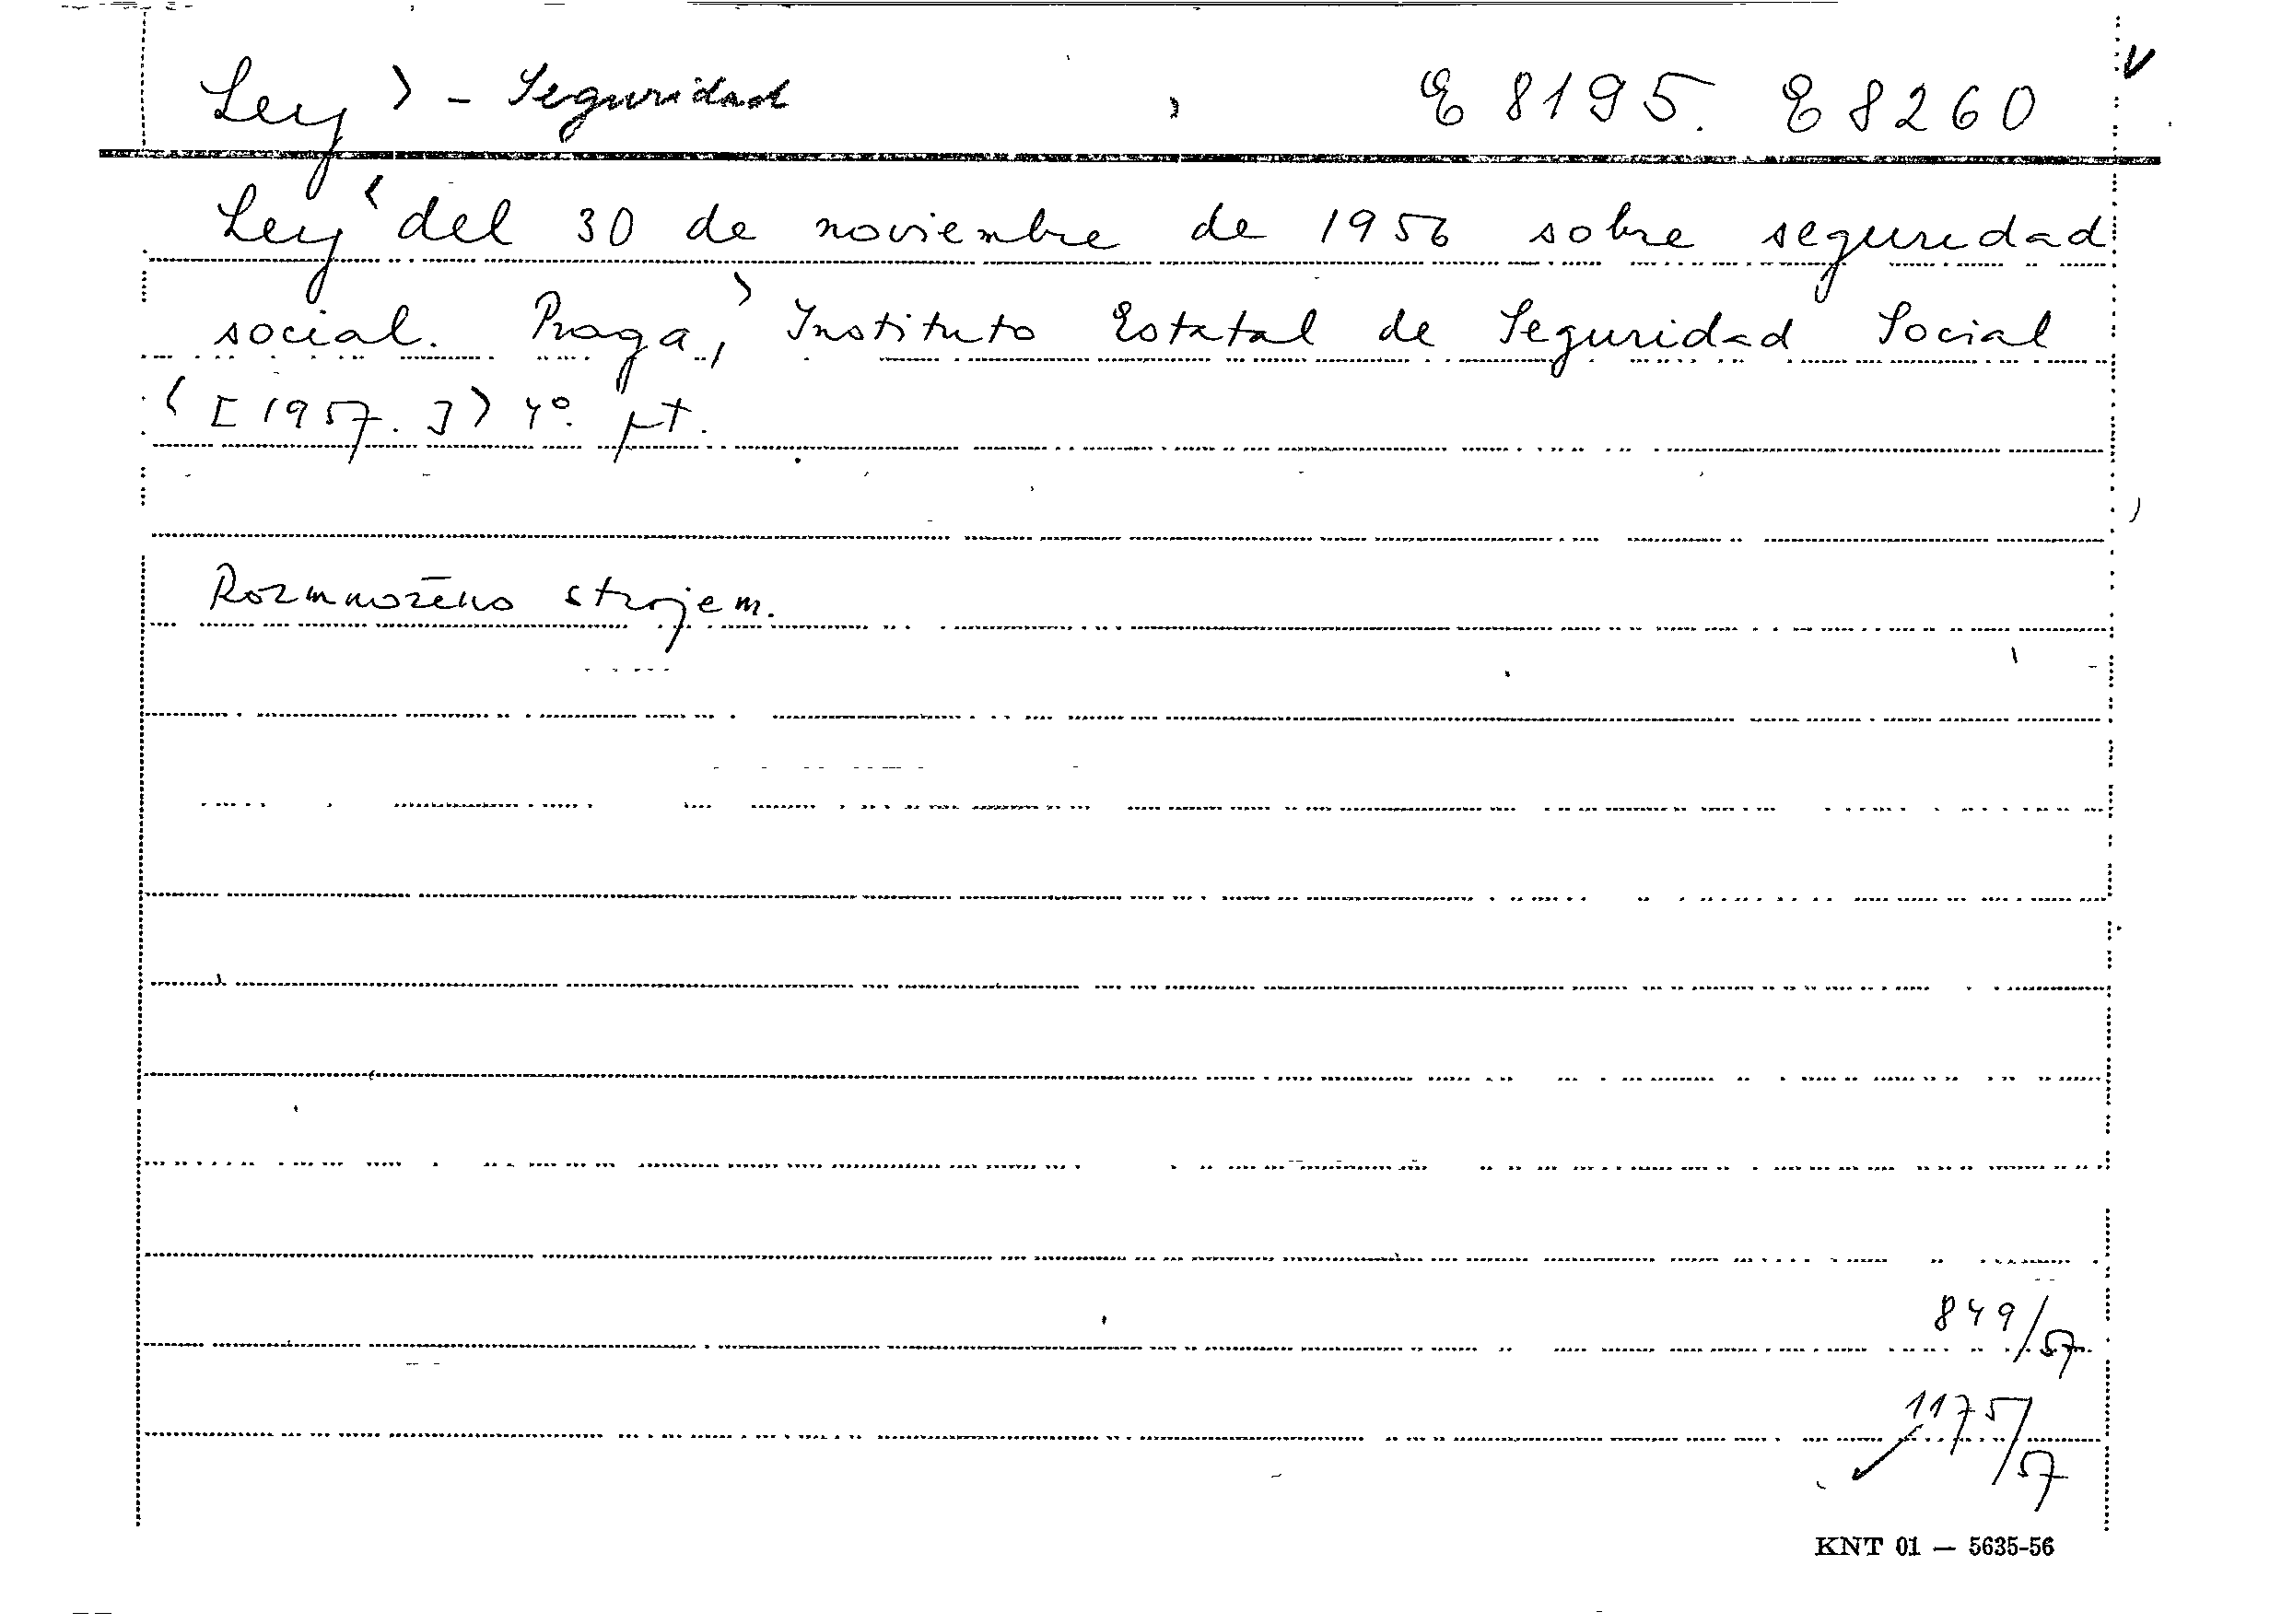 Ley > - Seguridad E 8195. E 8260
Ley < del 30 de noviembre de 1956 sobre seguridad
social. Praga, > Instituto Estatal de Seguridad Social
< [1957.] > 4°. pt.
Rozmnoženo strojem.
849/57
1175/57
KNT 01 — 5635-56